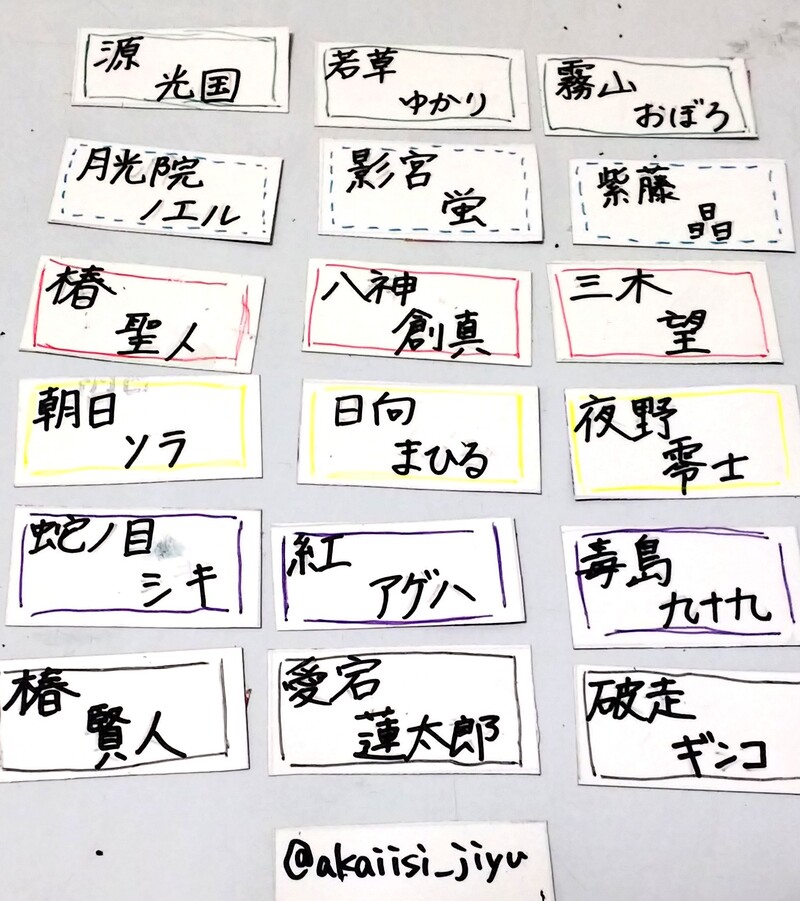 源
光国
若草
ゆかり
霧山
おぼろ
月光院
ノエル
影宮
蛍
紫藤
晶
椿
聖人
八神
創真
三木
望
朝日
ソラ
日向
まひる
夜野
零士
蛇ノ目
シキ
紅
アゲハ
毒島
九十九
椿
賢人
愛宕
蓮太郎
破走
ギンコ
@akaiisi_jiyu